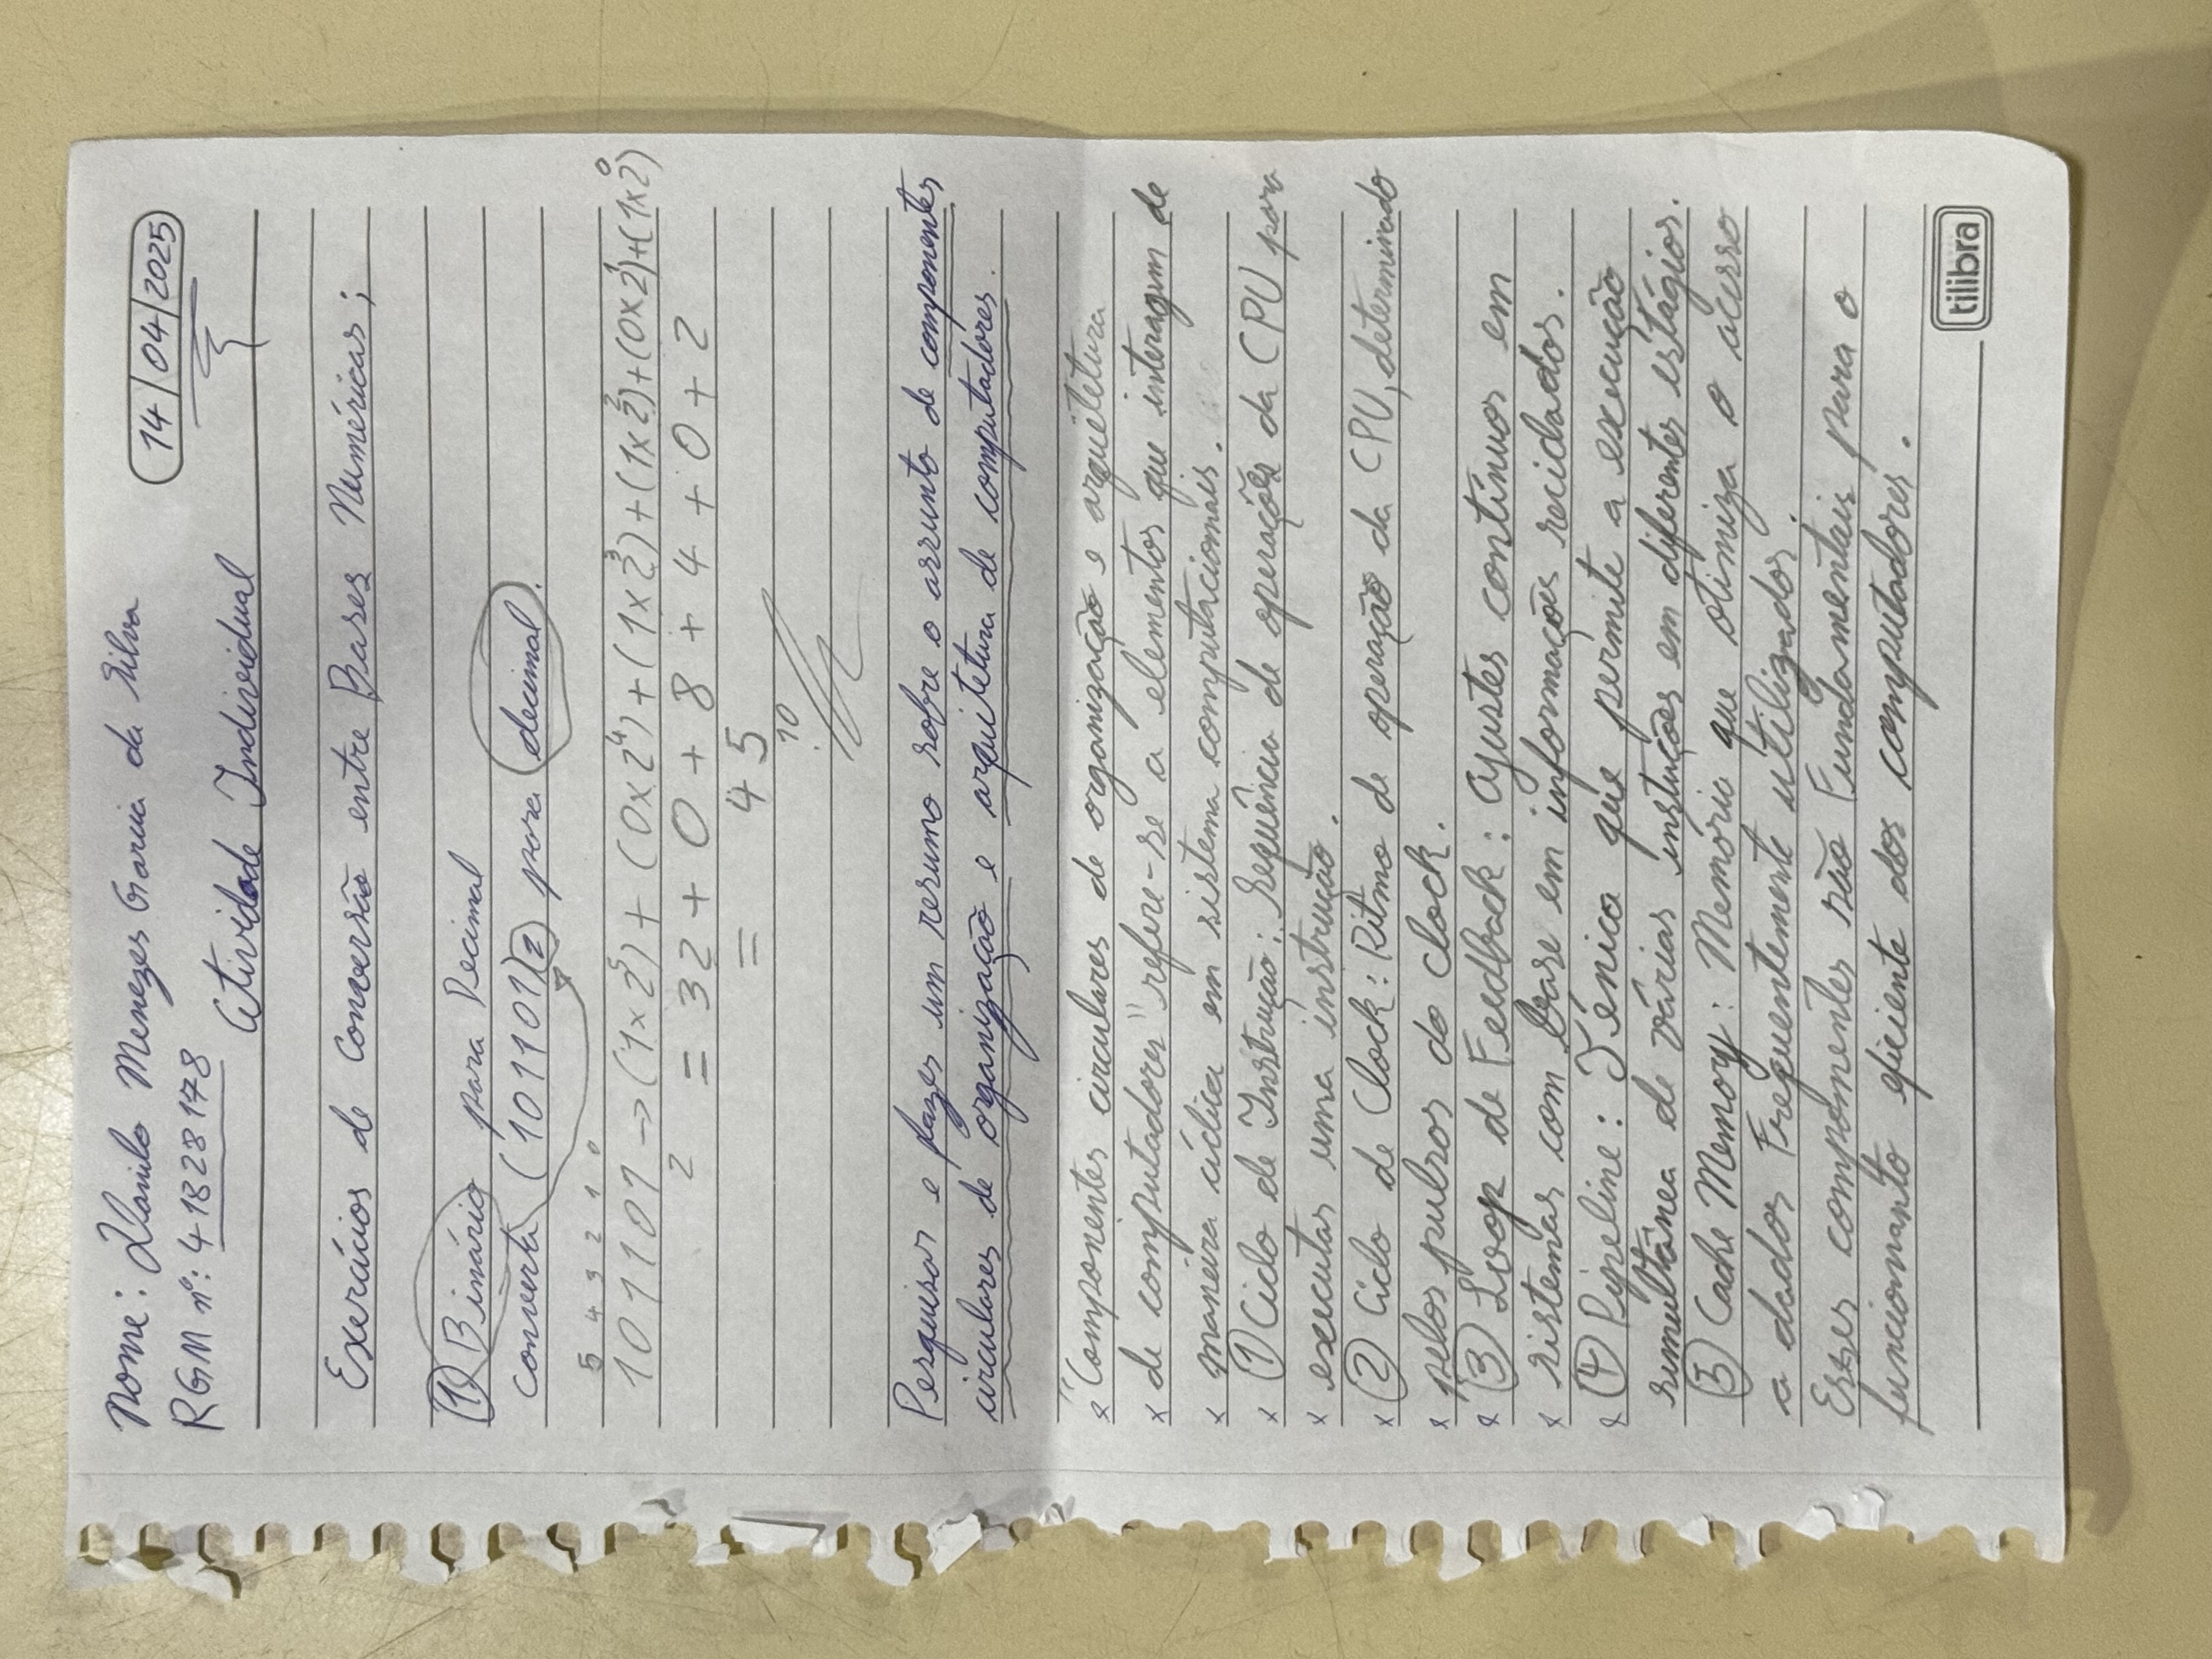 Nome: Danilo Menezes Garcia da Silva
14/04/2025
RGM nº: 41828178
Atividade Individual
Exercícios de Conversão entre Bases Numéricas;
1) Binário para Decimal
converta (101101)2 para decimal.
5 4 3 2 1 0
101101 → (1x2⁵) + (0x2⁴) + (1x2³) + (1x2²) + (0x2¹) + (1x2⁰)
2 = 32 + 0 + 8 + 4 + 0 + 2
= 45
10
Pesquisar e fazer um resumo sobre o assunto de componentes
circulares de organização e arquitetura de computadores.
"Componentes circulares de organização e arquitetura
x de computadores" refere-se a elementos que interagem de
x maneira cíclica em sistema computacionais.
x 1 Ciclo de Instrução: Sequência de operações da CPU para
x executar uma instrução.
x 2 Ciclo de Clock: Ritmo de operação da CPU, determinado
x pelos pulsos do clock.
x 3 Loop de Feedback: Ajustes contínuos em
x sistemas com base em informações reciclados.
x 4 Pipeline: Ténica que permite a execução
simultânea de várias instuções em diferentes estágios.
5 Cache Memory: Memória que otimiza o acesso
a dados Frequentemente utilizados.
Esses compomentes são Fundamentais para o
funcionamto eficiente dos computadores.
tilibra